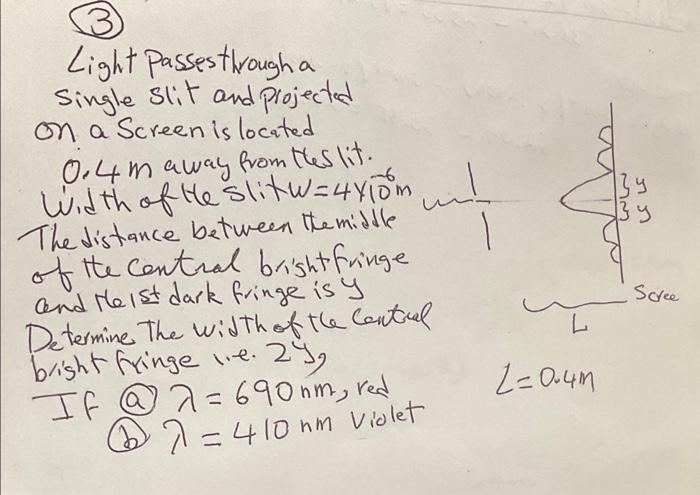 3
Light passes through a
single slit and projected
on a screen is located
0.4 m away from the slit.
Width of the slit W = 4 x 10^-6 m
The distance between the middle
of the central bright fringe
and the 1st dark fringe is y
Determine The width of the central
bright fringe i.e. 2y,
If (a) λ = 690 nm, red
(b) λ = 410 nm violet
} y
} y
Scree
L
L = 0.4m